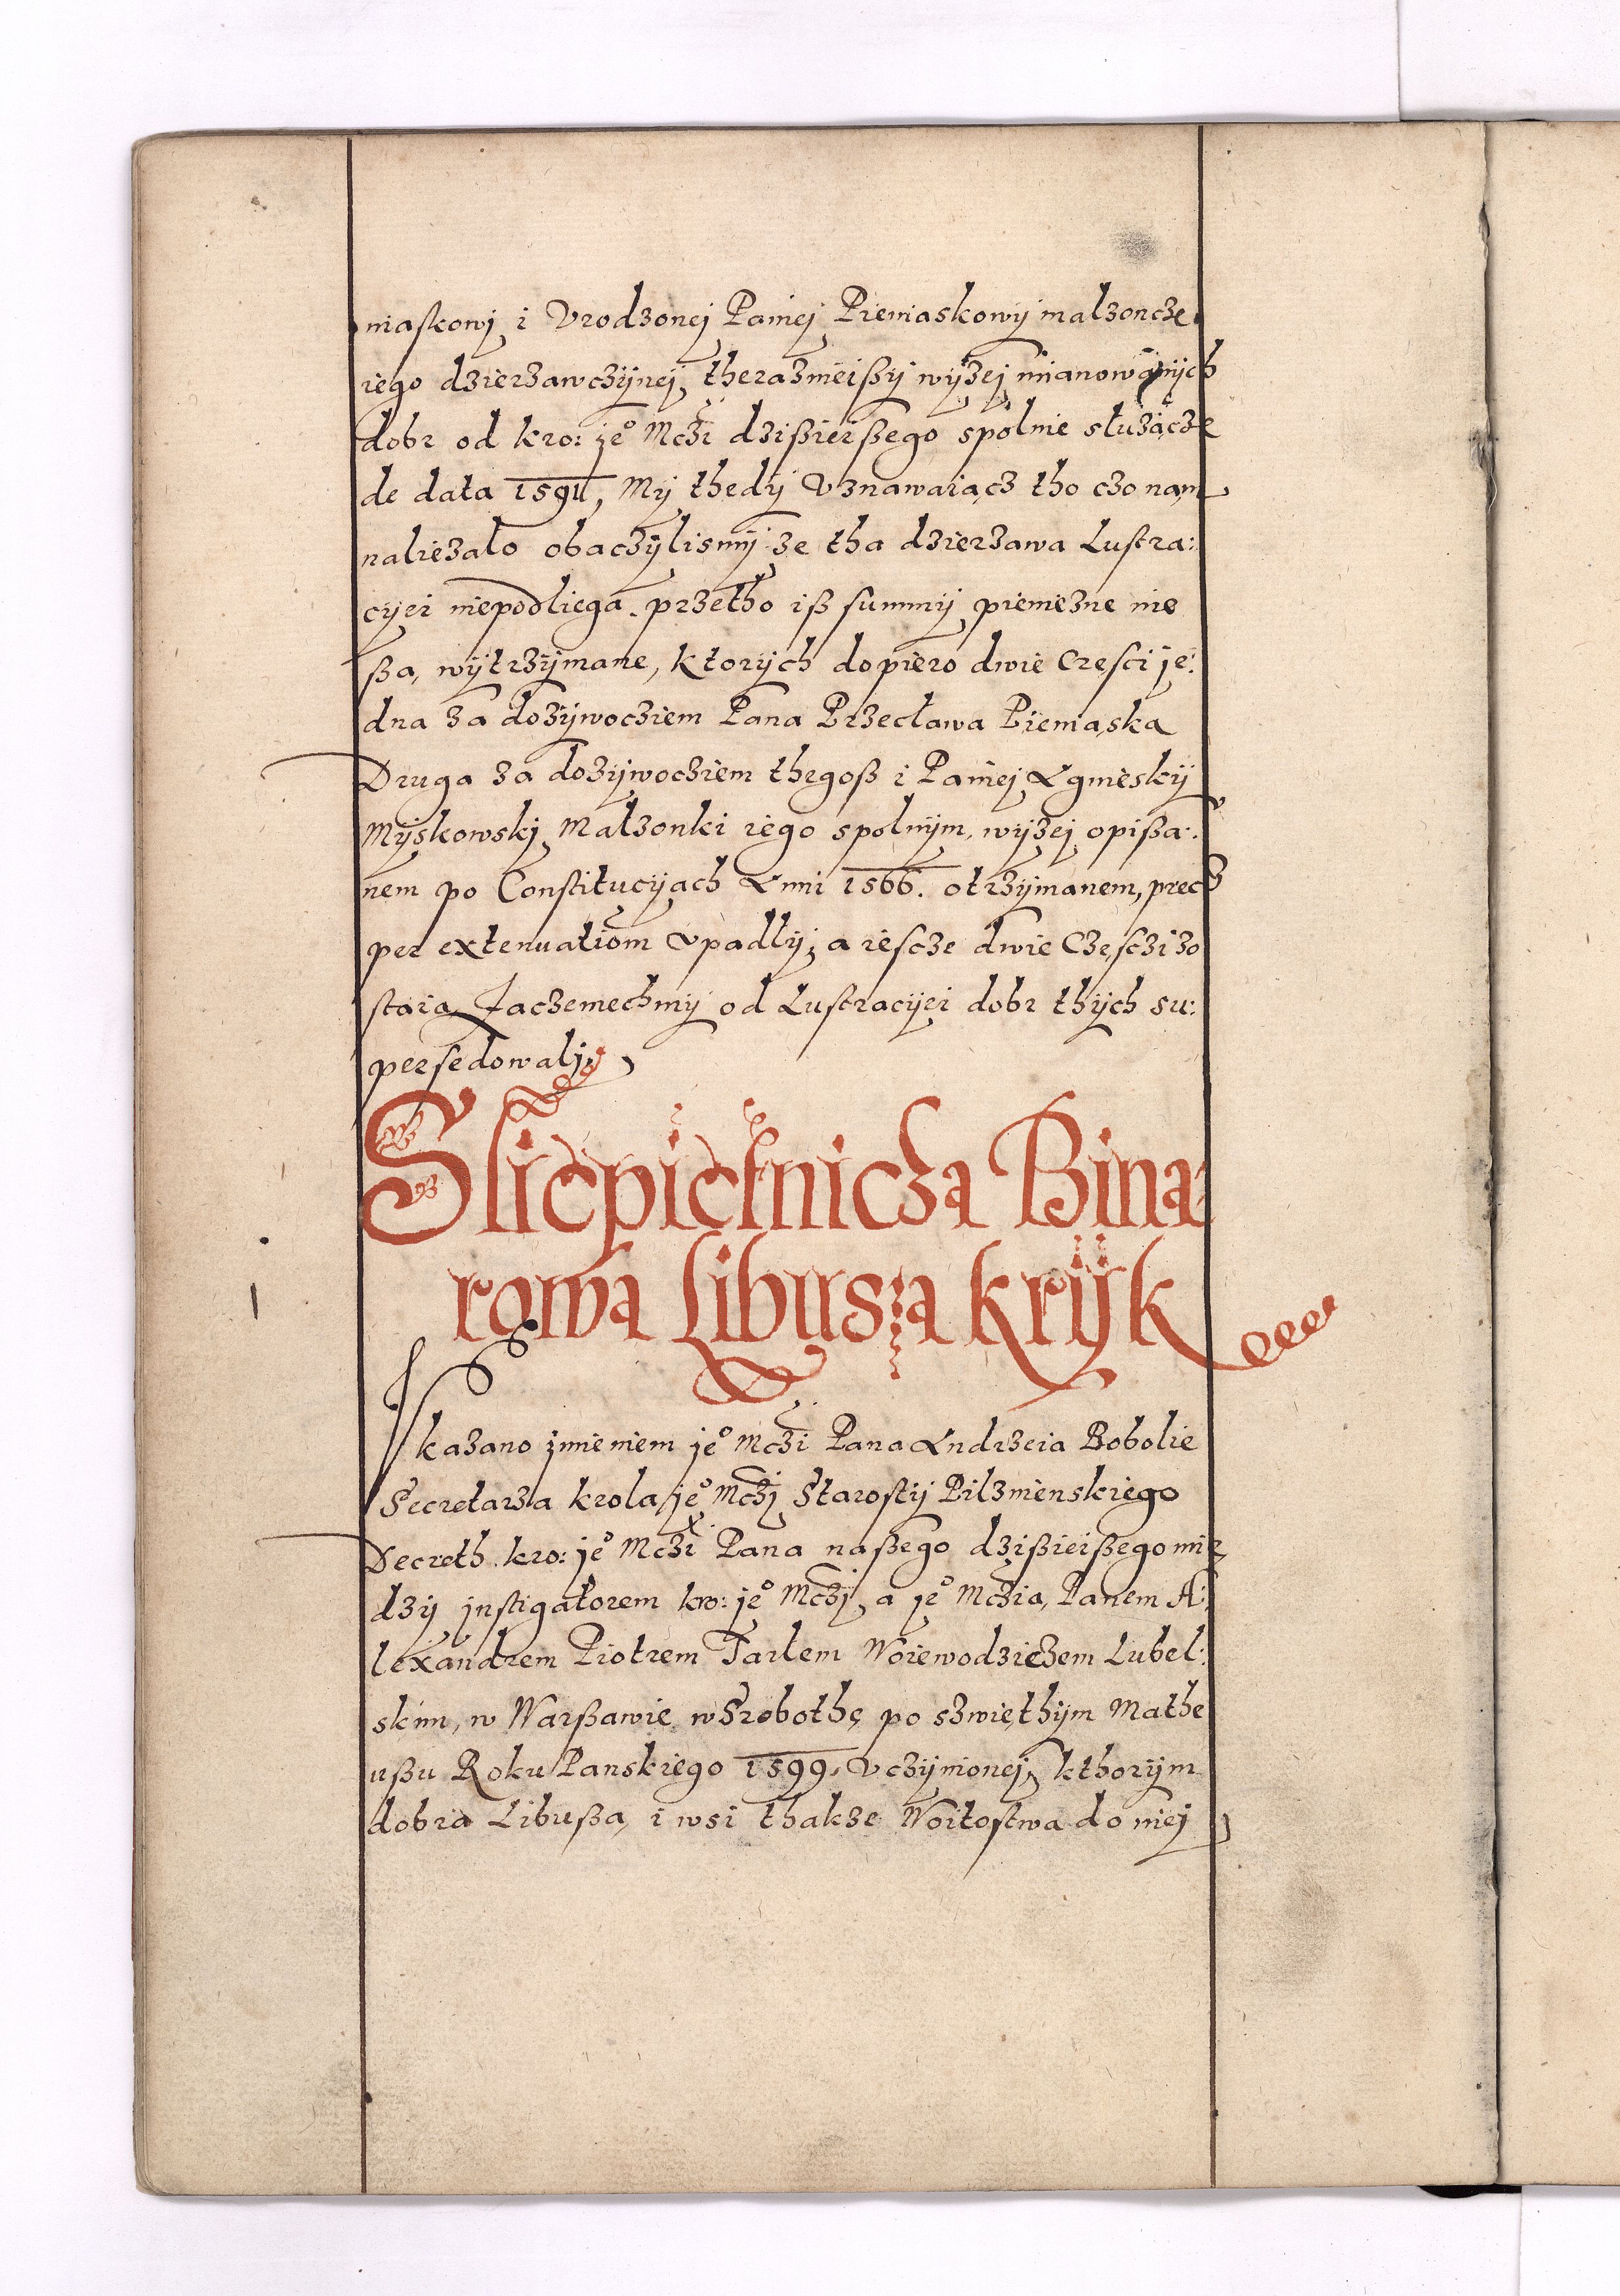 niaskowj i Vrodzonej Paniej Pieniaskowij malzoncze
iego dzierzawczijnej, theraznieißij wijzej mianowanijch
dobr od kro: je° Mczi dzißieißego spolnie służącze
de data 1591, Mij thedij Vznawaiącz tho czo nam
naliezało obaczijlismij ze tha dzierzawa Lustra:
cyjei niepodliega. przetho iß summij pieniezne nie
ßą, wijtrzijmane, ktorijch dopiero dwie Częsci je:
dna za dozijwocziem Pana Przecława Pieniąska
Druga za dozijwocziem thegoß i Paniej Agnieskij
Mijskowskj Małzonki iego spolnijm, wijzej opißa:
nem po Constitucijach Anni 1566. otrzijmanem, precz
per extenuationem Vpadlij, a iescze dwie Częsczi zo
staią Zaczemechmij od Lustracijei dobr thijch su:
persedowalj,
Sliepietnicza Bina:
rowa Libusza krijk
Vkazano jmieniem je° Mczi Pana Andrzeia Bobolie
Secretarza krola je° Mczj Starostij Pilznienskiego
Decreth kro: je° Mczi Pana naßego dzißieißego mię
dzij jnstigatorem kro: je° Mczj, a je° Mczią, Panem A:
lexandrem Piotrem Tarlem Woiewodziczem Lubel:
skim, w Warßawie w Srobothę po szwiethijm Mathe
ußu Roku Panskiego 1599. Vczijnionej, kthorijm
dobra Libußa, i wsi thakze Woitostwa do niej